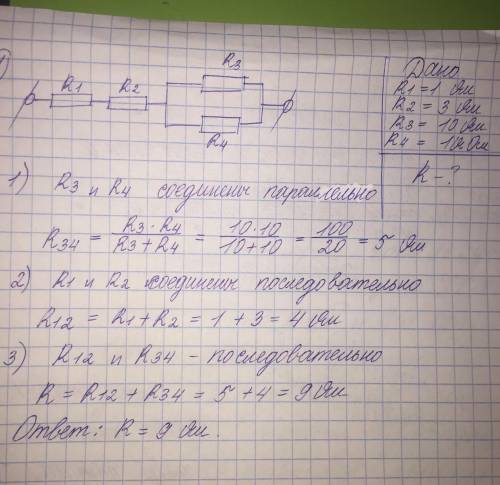 1)
R1 R2 R3
R4
Дано
R1 = 1 Ом
R2 = 3 Ом
R3 = 10 Ом
R4 = 10 Ом
R - ?
1) R3 и R4 соединены параллельно
R34 = R3 · R4 / R3 + R4 = 10 · 10 / 10 + 10 = 100 / 20 = 5 Ом
2) R1 и R2 соединены последовательно
R12 = R1 + R2 = 1 + 3 = 4 Ом
3) R12 и R34 - последовательно
R = R12 + R34 = 5 + 4 = 9 Ом
Ответ: R = 9 Ом.